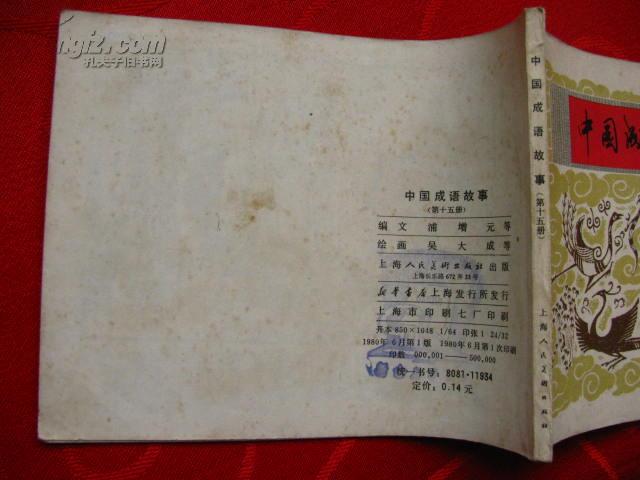 孔夫子旧书网
中国成语故事
(第十五册)
编文 浦增元等
绘画 吴大成等
上海人民美术出版社出版
上海长乐路672弄33号
新华书店上海发行所发行
上海市印刷七厂印刷
开本 850×1048 1/64 印张 1 24/32
1980年6月第1版 1980年6月第1次印刷
印数 000,001—500,000
统一书号: 8081·11934
定价: 0.14元
中国成语故事(第十五册)
上海人民美术出版社
中国成